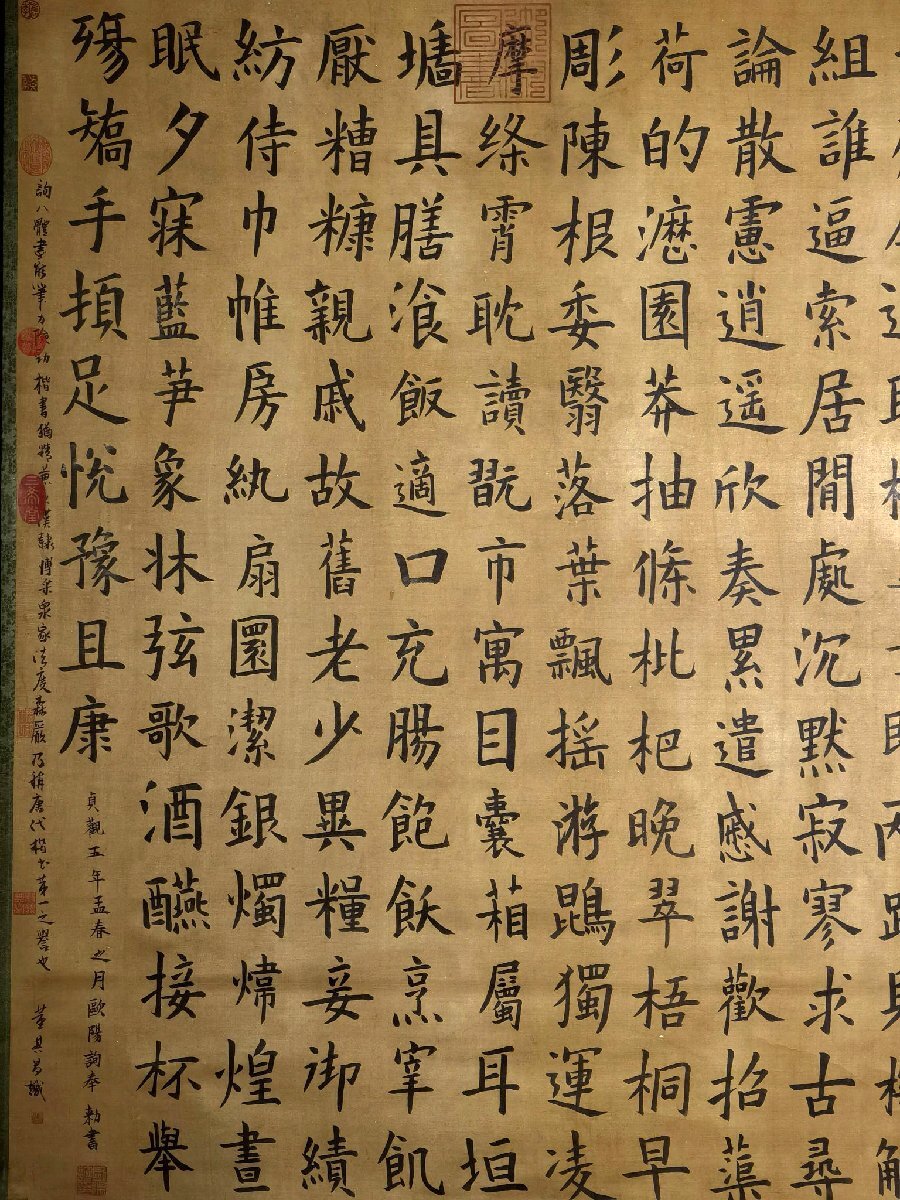 組誰逼索居閒處沉默寂寥求古尋
論散慮逍遥欣奏累遣慼謝歡招蕖
荷的瀝園莽抽條枇杷晚翠梧桐早
彫陳根委翳落葉飄摇游鵾獨運凌
摩絳霄耽讀翫市寓目囊葙屬耳垣
墻具膳飡飯適口充腸飽飫烹宰飢
厭糟糠親戚故舊老少異糧妾御績
紡侍巾帷房紈扇圓潔銀燭煒煌晝
眠夕寐藍笋象牀弦歌酒醼接杯舉
殤矯手頓足悅豫且康
貞觀五年孟春之月歐陽詢奉勅書
詢八體書能筆力險勁楷書猶精漢隸博采衆家法度森嚴乃稱唐代楷書第一之譽也 董其昌識